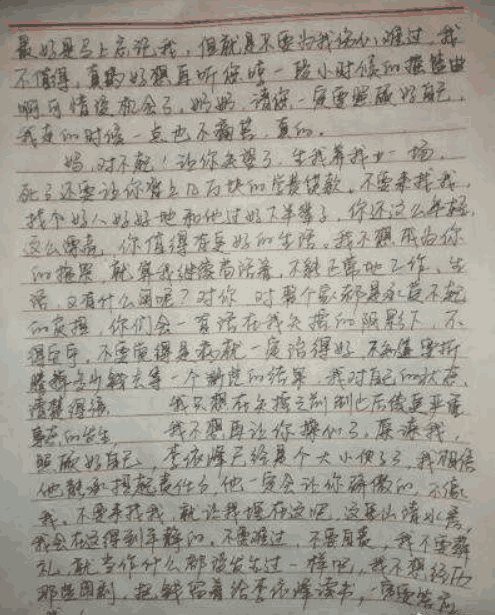 最好是马上忘记我，但就是不要为我伤心，难过，我
不值得，真的好想再听你哼一段小时候的摇篮曲
啊可惜没机会了，妈妈，请您一定要照顾好自己，
我走的时候一点也不痛苦，真的。
妈，对不起！让你失望了，生我养我一场，
死了还要让你背上几万块的学费贷款，不要来找我，
找个好人好好地和他过好下半辈子，你还这么年轻，
这么漂亮，你值得有更好的生活，我不想成为你
的拖累，就算我继续苟活着，不能正常地工作、生
活，又有什么用呢？对你，对整个家都是永远不起
的负担，你们会一直活在我失控的阴影下，不
得安宁，不要觉得是病就一定治得好，不值要折
腾得去出钱去等一个渺茫的结果，我对自己的状态，
清楚得很， 我只想在失控之前制止后续更严重
事态的发生， 我不想再让你操心了，原谅我，
照顾好自己，李依泽已经是个大小伙子了，我相信
他能承担起责任了，他一定会让你骄傲的，不像
我，不要来找我，就让我埋在这吧，这里山清水秀，
我会在这得到平静的，不要难过，不要自哀，我不要葬
礼，就当作什么都没发生过一样吧，我不想经历
那些回别，把钱留着给李依泽读书，一定要答应